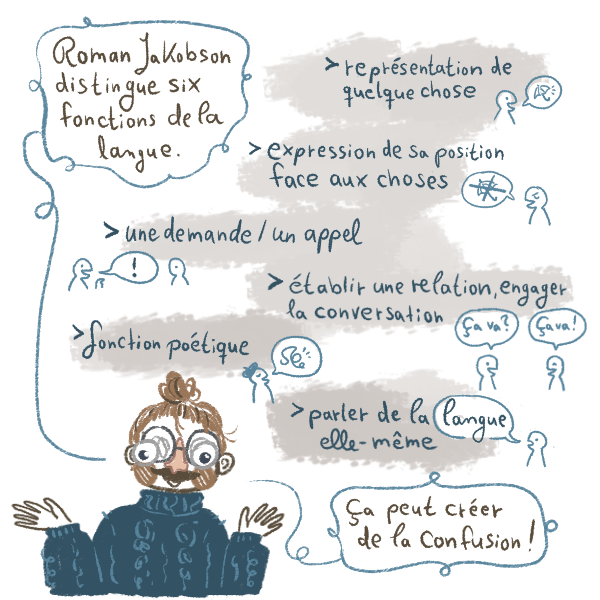 Roman Jakobson
distingue six
fonctions de la
langue.
> représentation de
quelque chose
> expression de sa position
face aux choses
> une demande / un appel
!
> établir une relation, engager
la conversation
Ça va?
Ça va!
> fonction poétique
> parler de la langue
elle-même
Ça peut créer
de la confusion!